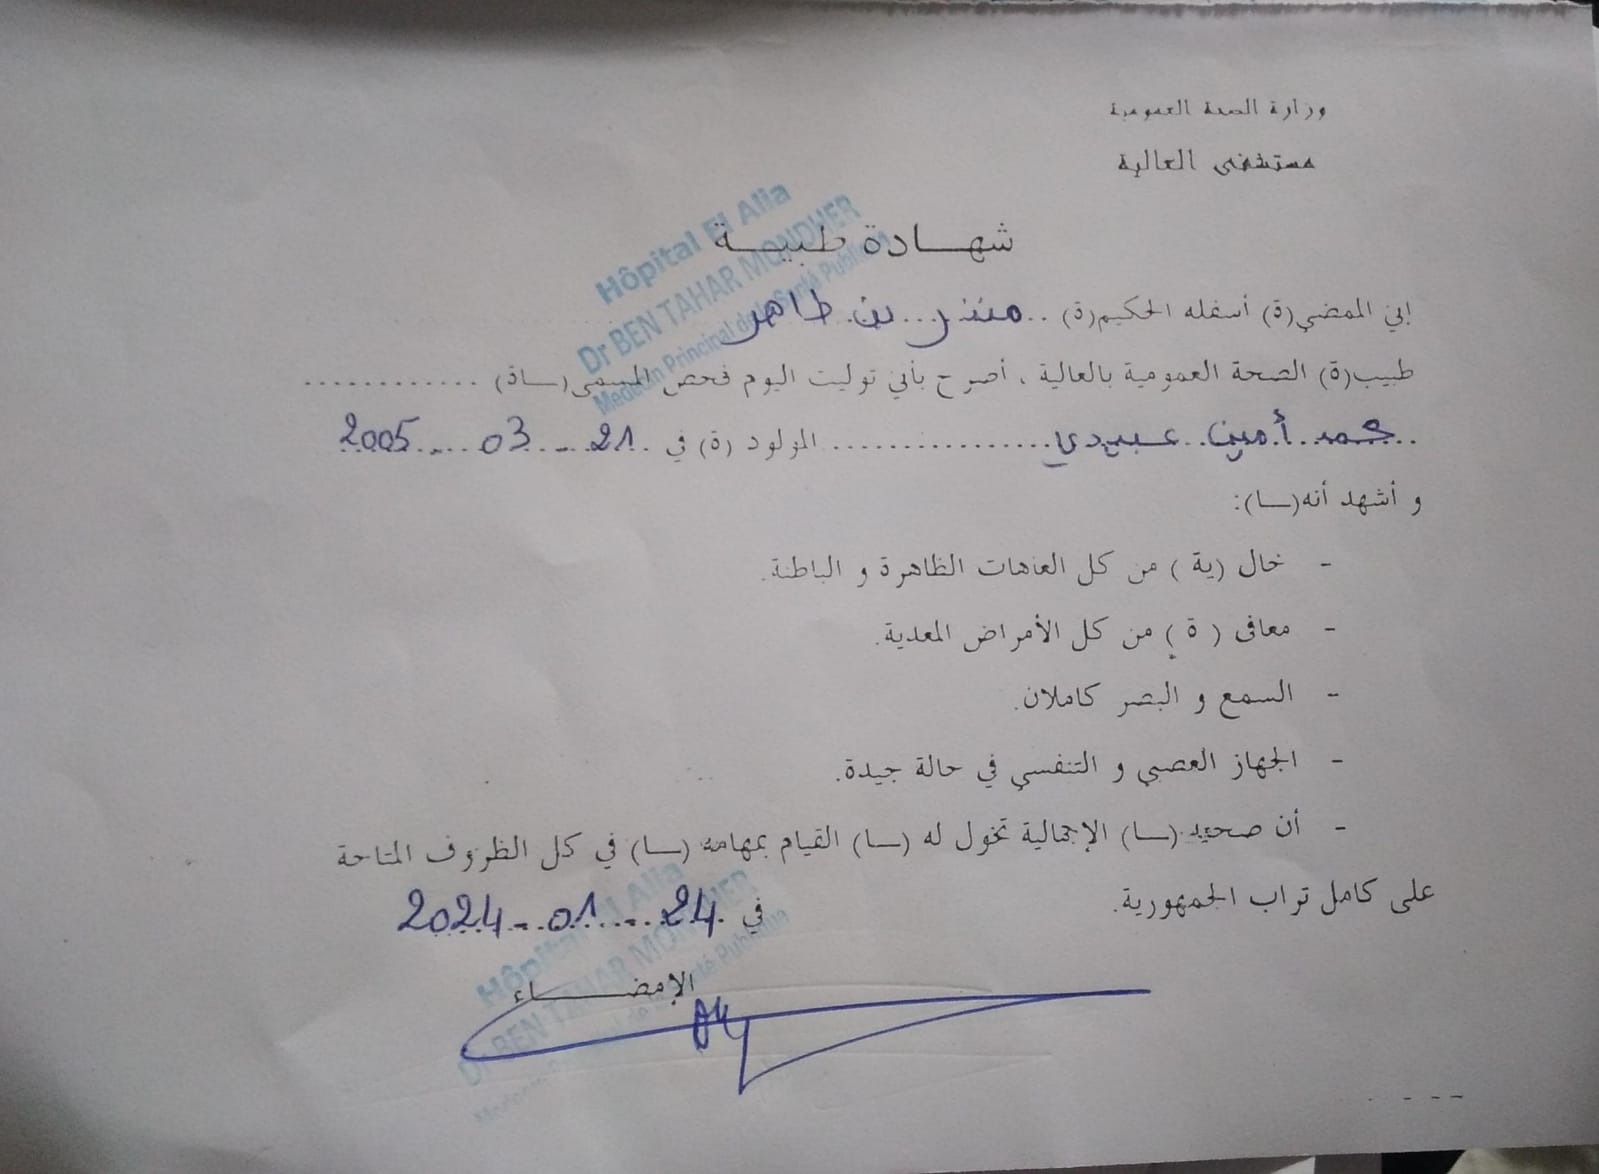 وزارة الصحة العمومية
مستشفى العالية
Hôpital El Alia
Dr BEN TAHAR MONDHER
Médecin Principal de la Santé Publique
شهـــادة طبيـــة
إني الممضي(ة) أسفله الحكيم(ة) ..منذر..بن طاهر
طبيب(ة) الصحة العمومية بالعالية ، أصرح بأني توليت اليوم فحص المسمى(ـاة) ............
..محمد..أمين..عبيدي................ المولود (ة) في .21 - 03 - 2005
و أشهد أنه(ـا):
- خال (ية ) من كل العاهات الظاهرة و الباطنة.
- معافى ( ة ) من كل الأمراض المعدية.
- السمع و البصر كاملان.
- الجهاز العصبي و التنفسي في حالة جيدة.
- أن صحته (ـا) الإجمالية تخول له (ـا) القيام بمهامه (ـا) في كل الظروف المتاحة
على كامل تراب الجمهورية.
في .24 - 01 - 2024
الإمضـــــاء
Hôpital El Alia
Dr BEN TAHAR MONDHER